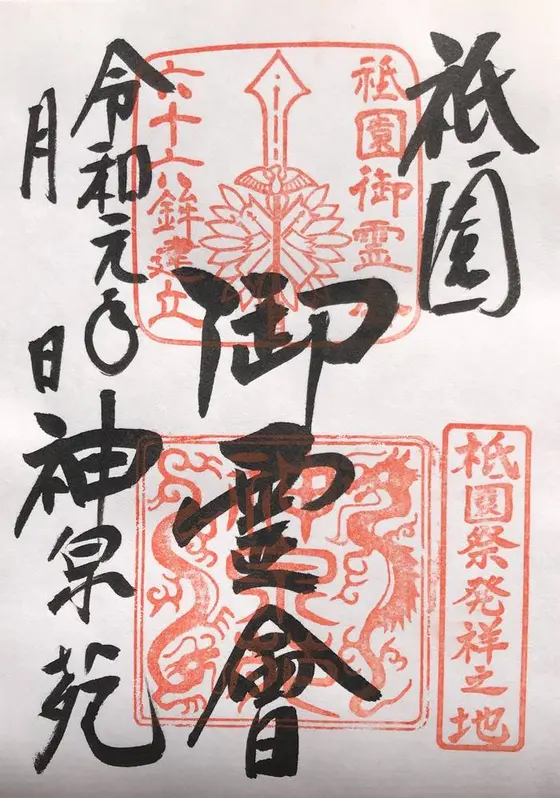 祇園
御霊會
令和元年
月 日
神泉苑
祇園御霊会
六十六鉾建立
祇園祭発祥之地
神泉苑